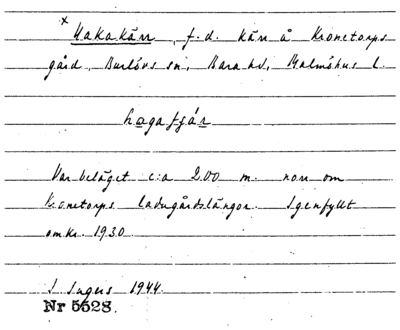 x Hakakän, f.d. kän å Kronetorps
gård, Burlövs sn, Bara hd, Malmöhus l.
hagaſjáṉ
Var beläget c:a 200 m. norr om
Kronetorps ladugårdslängor. Igenfyllt
omkr. 1930.
I Ingers 1944.
Nr 5528.